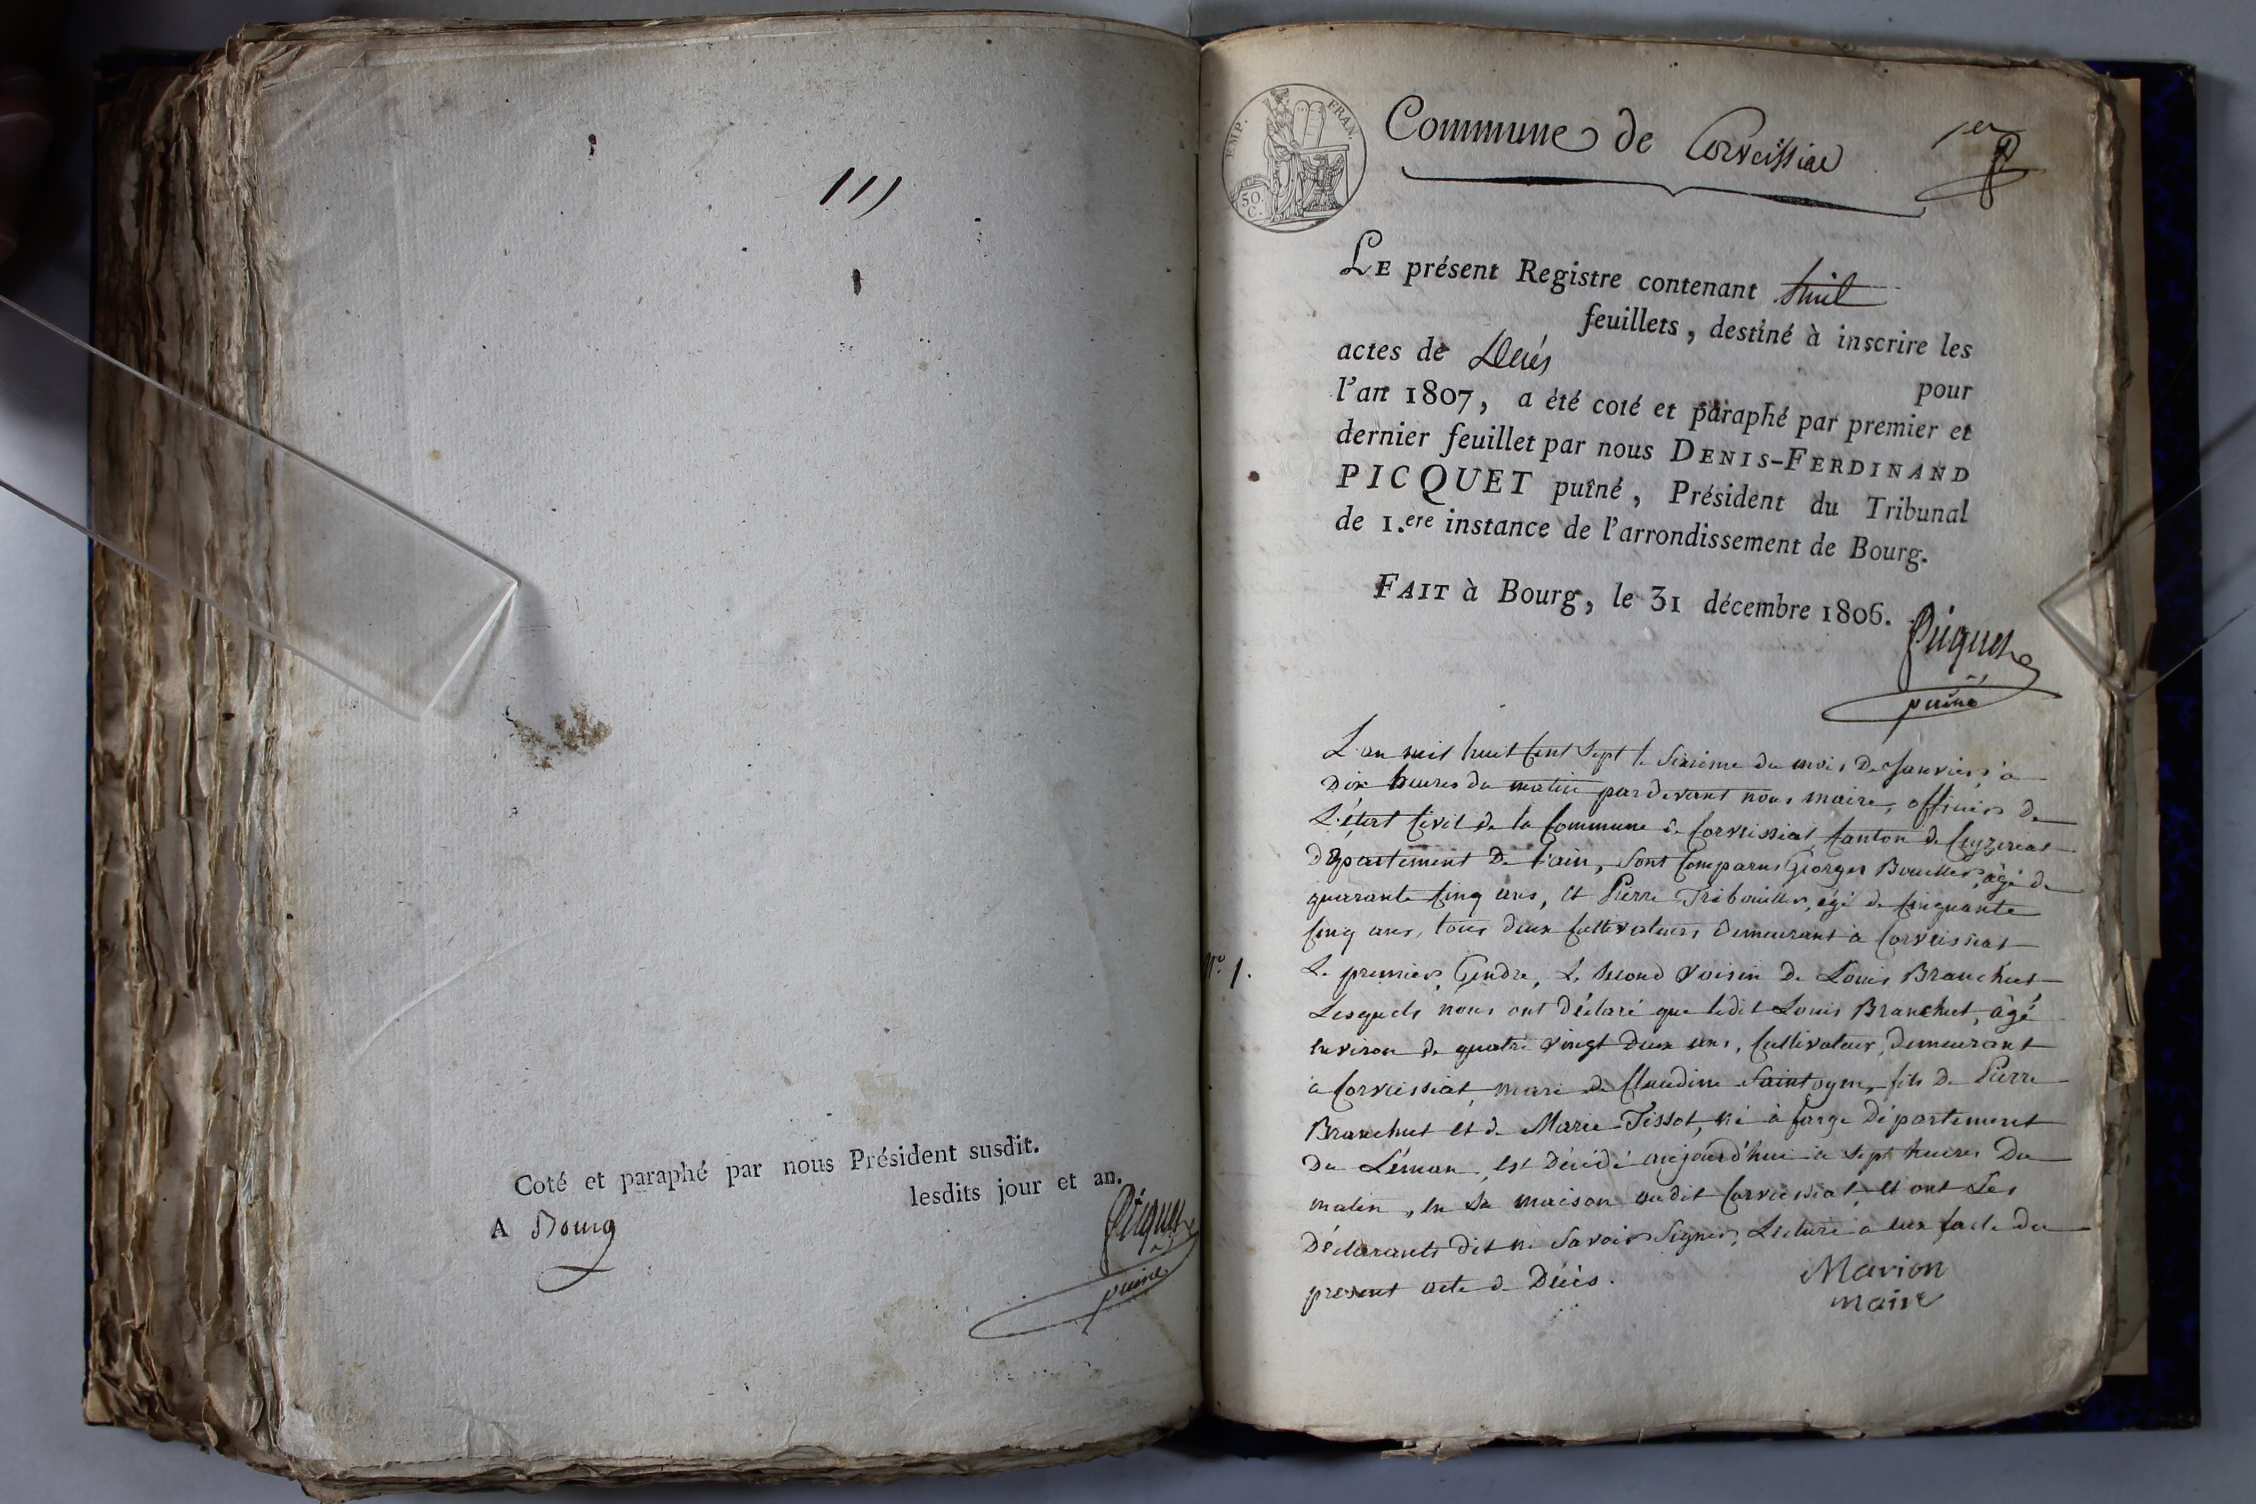 111
Coté et paraphé par nous Président susdit.
A Bourg lesdits jour et an.
Picquet
puiné
EMP. FRAN.
50.
C.
Commune de Corveissiat
1er
LE présent Registre contenant huit
feuillets, destiné à inscrire les
actes de Décès pour
l'an 1807, a été coté et paraphé par premier et
dernier feuillet par nous DENIS-FERDINAND
PICQUET puîné, Président du Tribunal
de 1.ere instance de l'arrondissement de Bourg.
FAIT à Bourg, le 31 décembre 1806.
Picquet
puiné
L'an mil huit cent sept le sixième du mois de Janvier, à
dix heures du matin pardevant nous maire, officier de
L'état Civil de la Commune de Corveissiat, Canton de Ceyzeriat
département de l'ain, sont Comparus Georges Bouiller, âgé de
quarante Cinq ans, et Pierre Tribouiller, âgé de Cinquante
Cinq ans, tous deux Cultivateurs demeurant à Corveissiat
N.° 1. Le premier Gendre, Le second voisin de Louis Branchut
Lesquels nous ont déclaré que ledit Louis Branchut, âgé
environ de quatre vingt deux ans, Cultivateur, demeurant
à Corveissiat, mari de Claudine Saintoyen, fils de Pierre
Branchut et de Marie Tissot, né à farge département
du Léman, est décédé aujourd'hui à sept heures du
matin, en sa maison audit Corveissiat, et ont Les
Déclarants dit ne savoir signer, Lecture à eux faite du
present acte de Décès.
Marion
maire